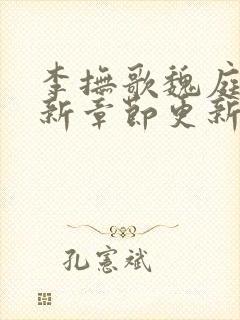 李撫歌魏庭
新章節更新
孔憲斌